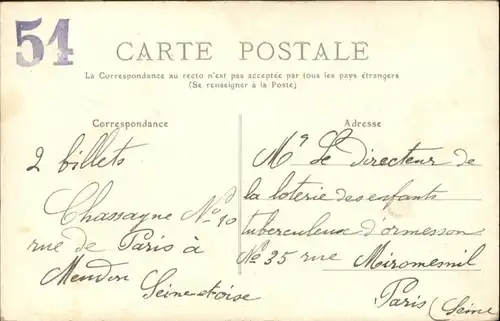 51
CARTE POSTALE
La Correspondance au recto n'est pas acceptée par tous les pays étrangers
(Se renseigner à la Poste)
Correspondance
2 billets
Chassagne No 10
rue de Paris à
Meudon
Seine et oise
Adresse
Mr Le directeur de
la loterie des enfants
tuberculeux d'ormesson
No 35 rue Miromemil
Paris (Seine